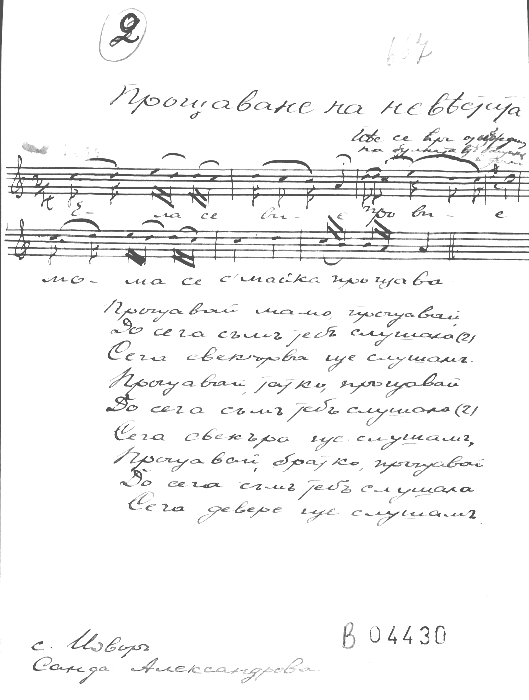 2
Прощаване на невѣстта
Ела се ви - е про ви - е
мо - ма се с майка прощава
Прощавай мамо, прощавай
До сега съмъ тебъ слушала (2)
Сега свекърва ще слушамъ.
Прощавай, татко, прощавай
До сега съмъ тебъ слушала (2)
Сега свекъра ще слушамъ,
Прощавай, братко, прощавай
До сега съмъ тебъ слушала
Сега девере ще слушамъ.
с. Изворъ
Санда Александрова
B 04430